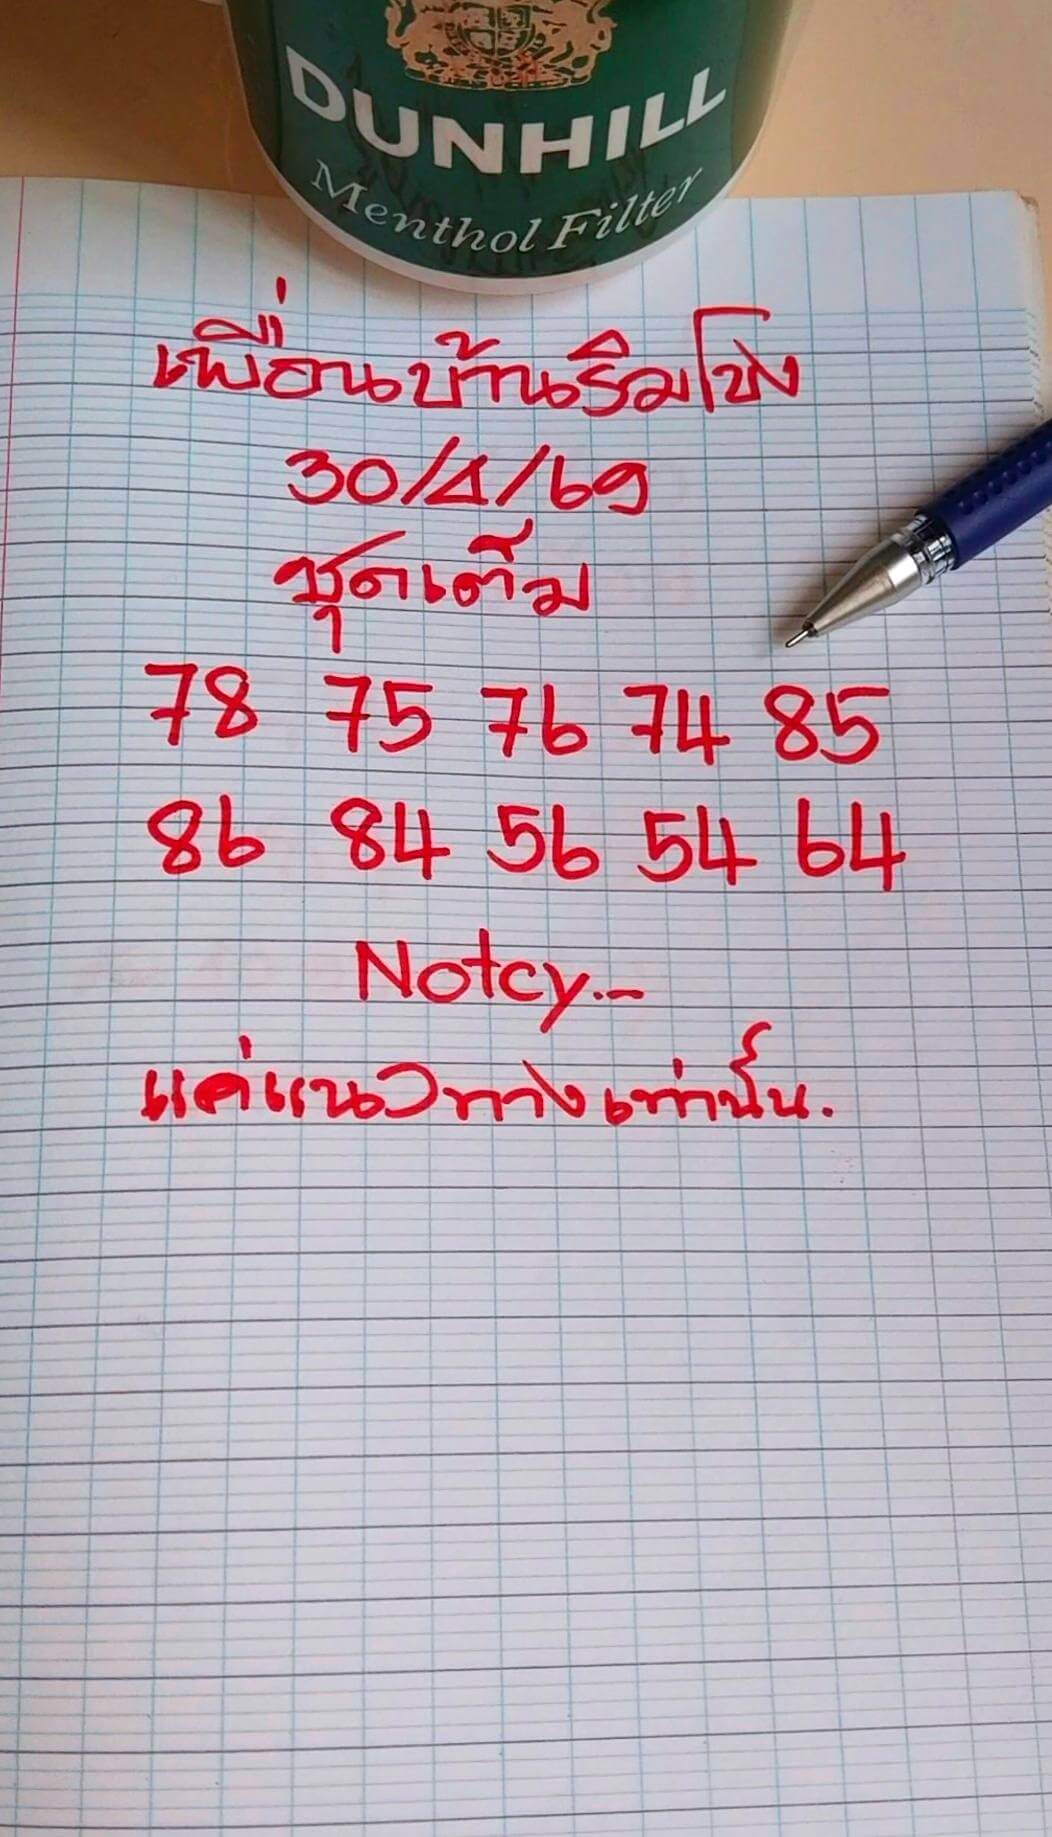 DUNHILL
Menthol Filter
เพื่อนบ้านริมโขง
30/4/69
ชุดเต็ม
78 75 76 74 85
86 84 56 54 64
Notcy.-
แค่แนวทางเท่านั้น.